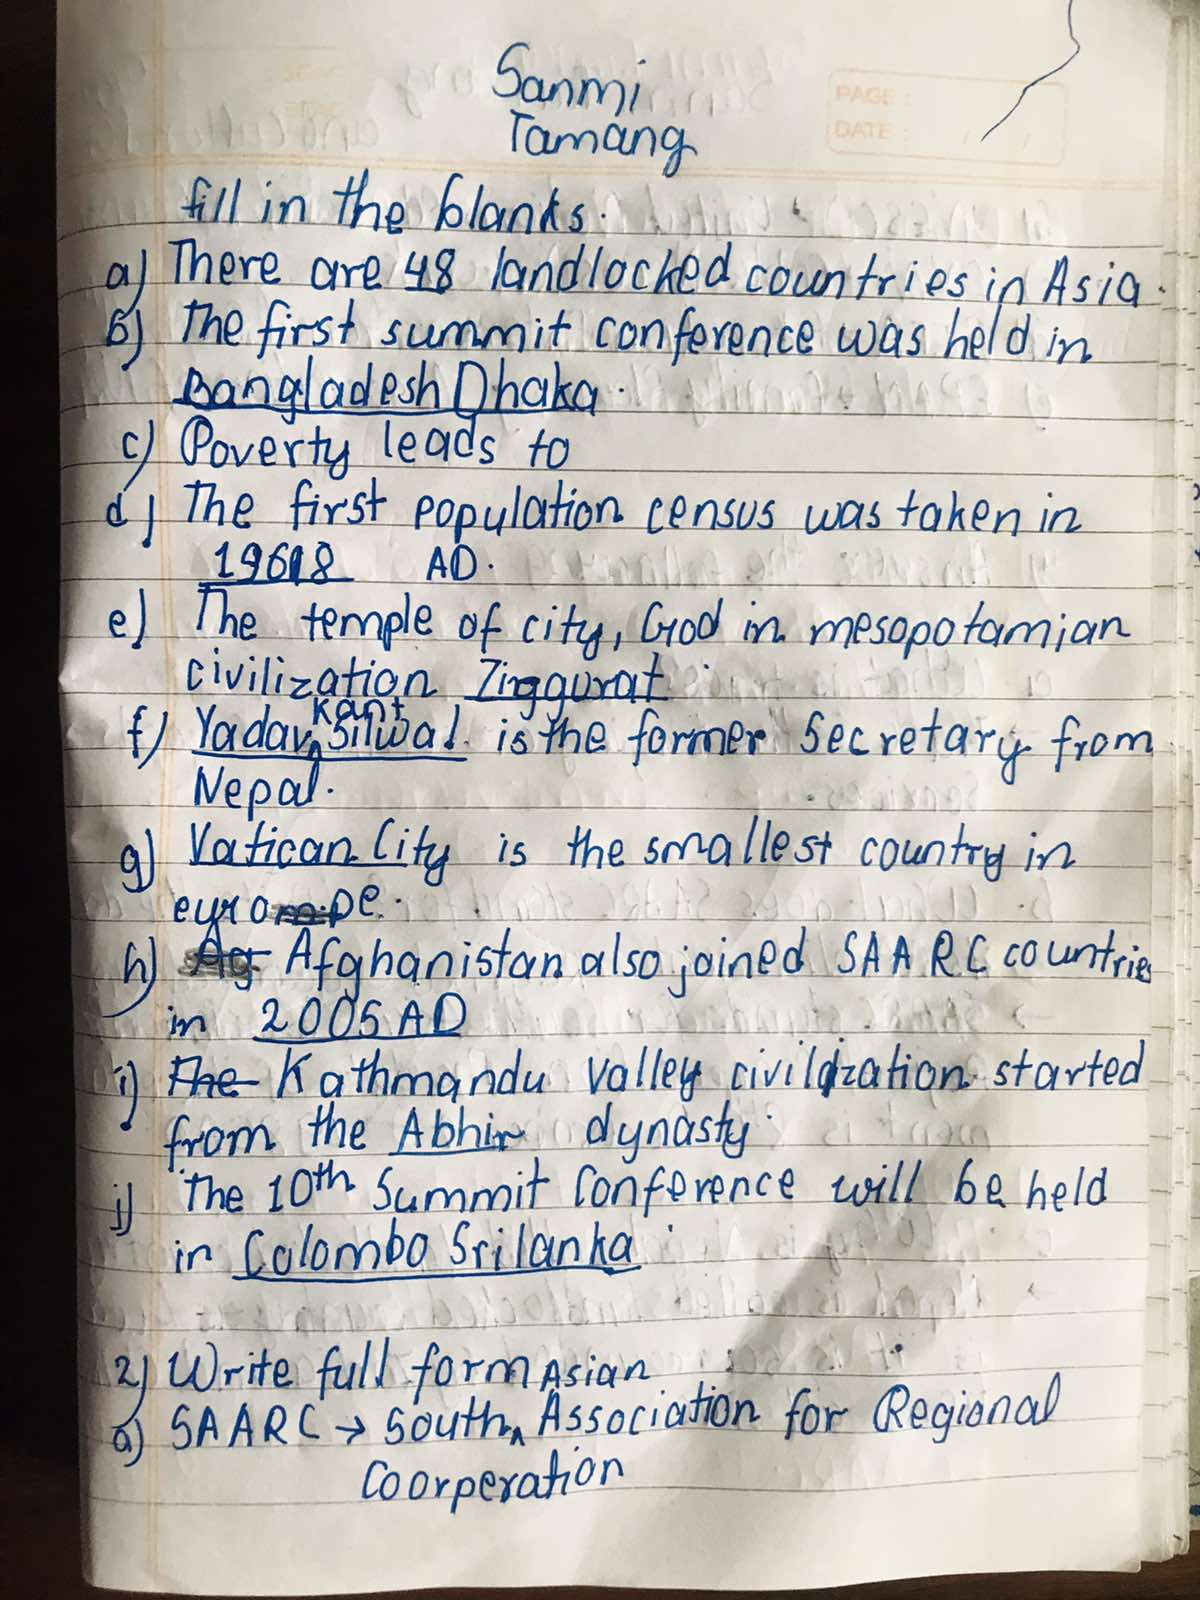 Sanmi
Tamang
PAGE :
DATE :
fill in the blanks.
a) There are 48 landlocked countries in Asia.
b) The first summit conference was held in
Bangladesh Dhaka.
c) Poverty leads to
d) The first population census was taken in
AD.
e) The temple of city, God in mesopotamian
civilization Zinggurat
f) Yadav Kant Silwal is the former Secretary from
Nepal.
g) Vatican City is the smallest country in
europe.
h) Afghanistan also joined SAARC countries
in 2005 AD
i) The Kathmandu valley civilization started
from the Abhir dynasty.
j) The 10th Summit Conference will be held
in Colombo Srilanka
2) Write full form
a) SAARC → South Asian Association for Regional
Coorperation